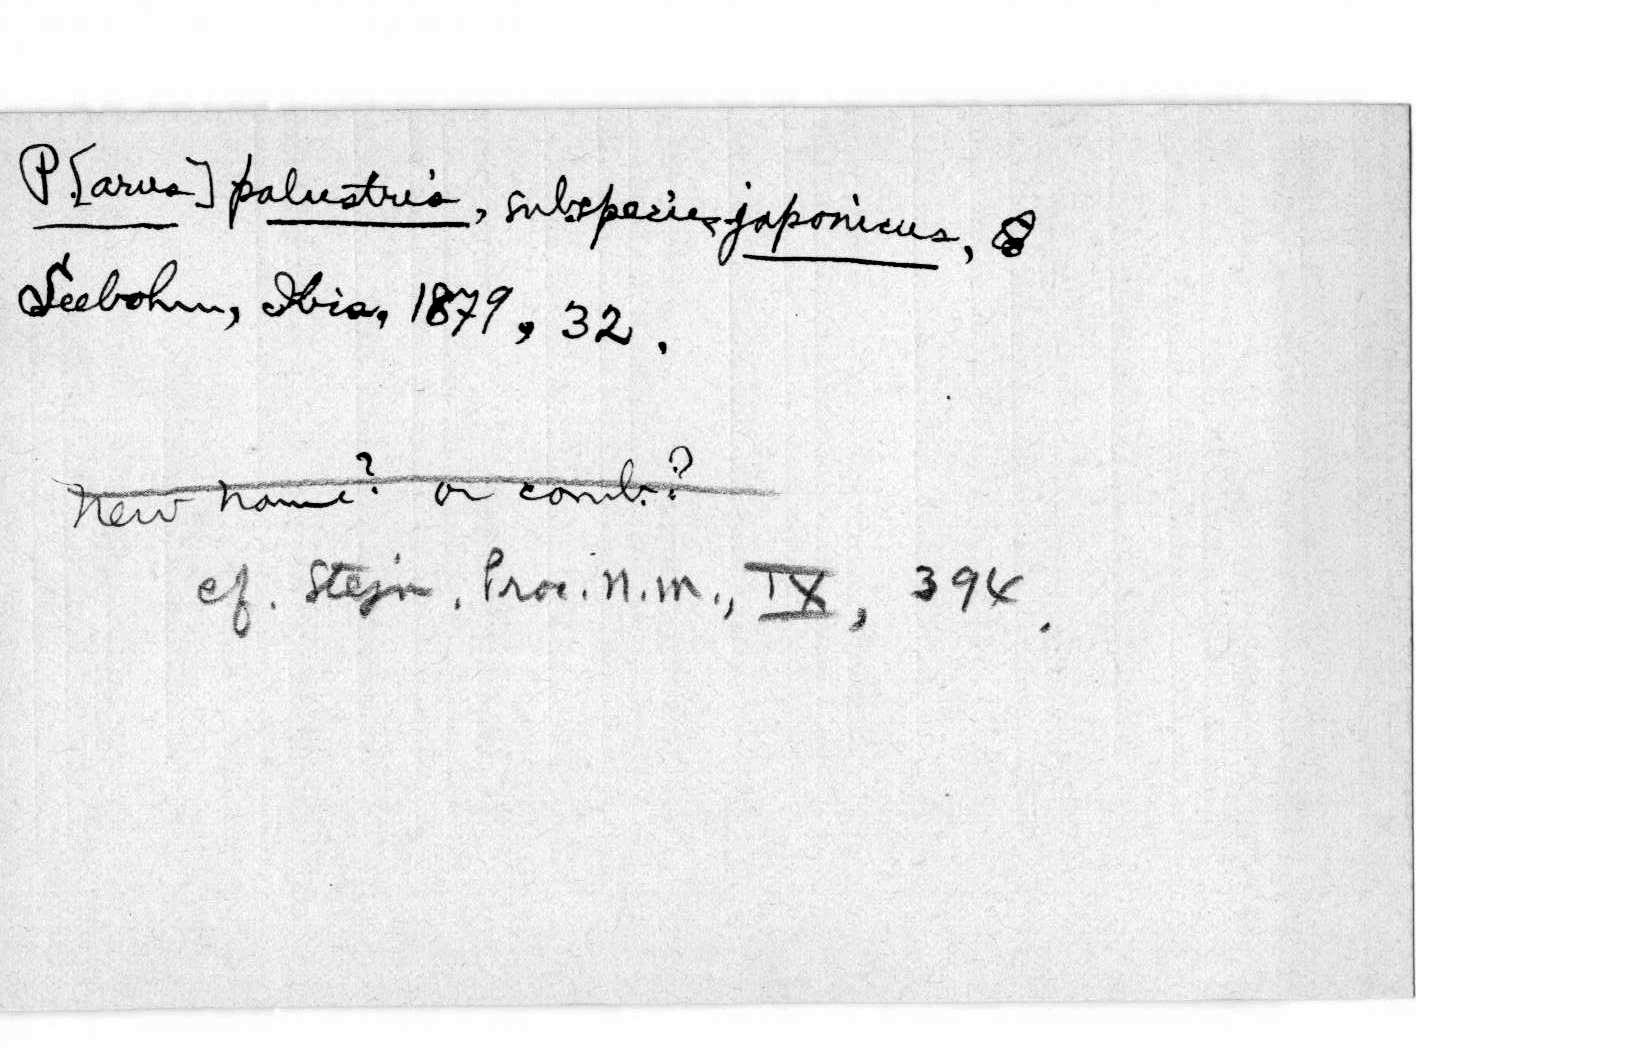 P[arus] palustris, subspecies japonicus,
Seebohm, Ibis, 1879, 32.
New name? or comb.?
cf. Stejn. Proc. N.M., IX, 394.